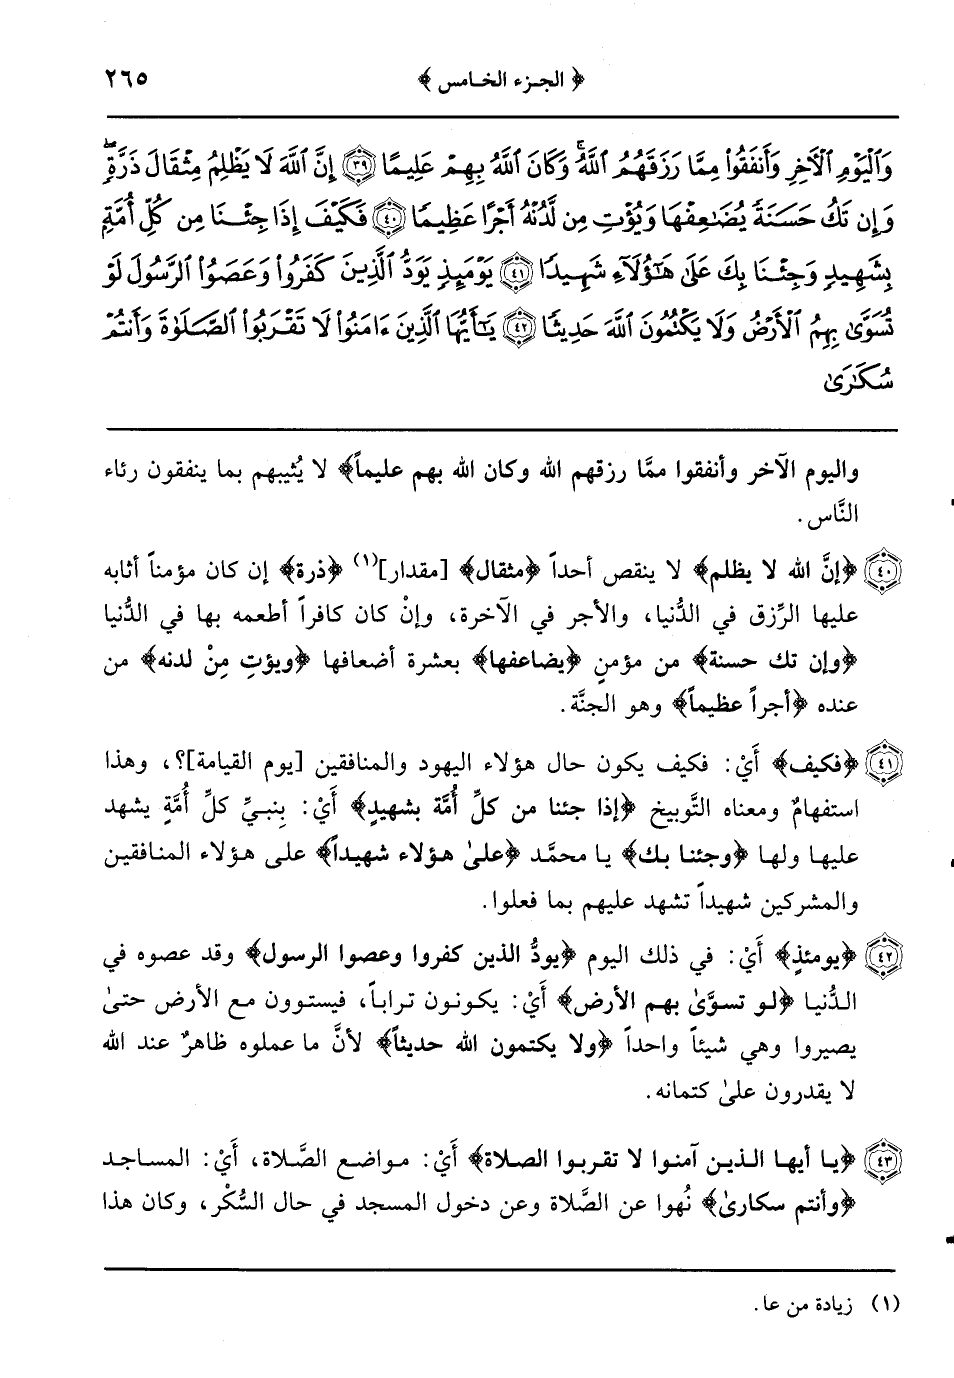 ﴿ الجزء الخامس ﴾ ٢٦٥
وَٱلْيَوْمِ ٱلْأَخِرِ وَأَنفَقُوا۟ مِمَّا رَزَقَهُمُ ٱللَّهُ ۚ وَكَانَ ٱللَّهُ بِهِمْ عَلِيمًا ﴿٣٩﴾ إِنَّ ٱللَّهَ لَا يَظْلِمُ مِثْقَالَ ذَرَّةٍ ۖ
وَإِن تَكُ حَسَنَةً يُضَٰعِفْهَا وَيُؤْتِ مِن لَّدُنْهُ أَجْرًا عَظِيمًا ﴿٤٠﴾ فَكَيْفَ إِذَا جِئْنَا مِن كُلِّ أُمَّةٍ
بِشَهِيدٍ وَجِئْنَا بِكَ عَلَىٰ هَٰٓؤُلَآءِ شَهِيدًا ﴿٤١﴾ يَوْمَئِذٍ يَوَدُّ ٱلَّذِينَ كَفَرُوا۟ وَعَصَوُا۟ ٱلرَّسُولَ لَوْ
تُسَوَّىٰ بِهِمُ ٱلْأَرْضُ وَلَا يَكْتُمُونَ ٱللَّهَ حَدِيثًا ﴿٤٢﴾ يَٰٓأَيُّهَا ٱلَّذِينَ ءَامَنُوا۟ لَا تَقْرَبُوا۟ ٱلصَّلَوٰةَ وَأَنتُمْ
سُكَٰرَىٰ
واليوم الآخر وأنفقوا ممَّا رزقهم الله وكان الله بهم عليماً﴾ لا يُثيبهم بما ينفقون رئاء
النَّاس.
﴿٤٠﴾ ﴿إنَّ الله لا يظلم﴾ لا ينقص أحداً ﴿مثقال﴾ [مقدار](١) ﴿ذرة﴾ إن كان مؤمناً أثابه
عليها الرِّزق في الدُّنيا، والأجر في الآخرة، وإنْ كان كافراً أطعمه بها في الدُّنيا
﴿وإن تك حسنة﴾ من مؤمنٍ ﴿يضاعفها﴾ بعشرة أضعافها ﴿ويؤتِ مِنْ لدنه﴾ من
عنده ﴿أجراً عظيماً﴾ وهو الجنَّة.
﴿٤١﴾ ﴿فكيف﴾ أَيْ: فكيف يكون حال هؤلاء اليهود والمنافقين [يوم القيامة]؟، وهذا
استفهامٌ ومعناه التَّوبيخ ﴿إذا جئنا من كلِّ أُمَّة بشهيدٍ﴾ أَيْ: بِنبيِّ كلِّ أُمَّةٍ يشهد
عليها ولها ﴿وجئنا بك﴾ يا محمَّد ﴿علىٰ هؤلاء شهيداً﴾ على هؤلاء المنافقين
والمشركين شهيداً تشهد عليهم بما فعلوا.
﴿٤٢﴾ ﴿يومئذٍ﴾ أَيْ: في ذلك اليوم ﴿يودُّ الذين كفروا وعصوا الرسول﴾ وقد عصوه في
الدُّنيا ﴿لو تسوَّىٰ بهم الأرض﴾ أَيْ: يكونون تراباً، فيستوون مع الأرض حتىٰ
يصيروا وهي شيئاً واحداً ﴿ولا يكتمون الله حديثاً﴾ لأنَّ ما عملوه ظاهرٌ عند الله
لا يقدرون علىٰ كتمانه.
﴿٤٣﴾ ﴿يا أيها الذين آمنوا لا تقربوا الصلاة﴾ أَيْ: مواضع الصَّلاة، أَيْ: المساجد
﴿وأنتم سكارىٰ﴾ نُهوا عن الصَّلاة وعن دخول المسجد في حال السُّكْر، وكان هذا
(١) زيادة من عا.